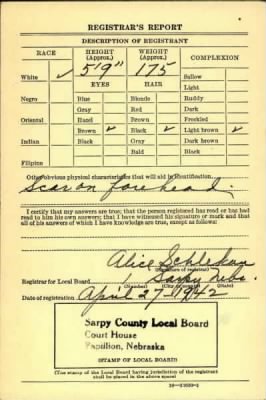 REGISTRAR'S REPORT
DESCRIPTION OF REGISTRANT
RACE HEIGHT (Approx.) WEIGHT (Approx.) COMPLEXION
White ✓ 5'9" 175 Sallow
EYES HAIR Light
Negro Blue Blonde Ruddy
Gray Red Dark
Oriental Hazel Brown Freckled
Brown ✓ Black ✓ Light brown ✓
Indian Black Gray Dark brown
Bald Black
Filipino
Other obvious physical characteristics that will aid in identification
Scar on forehead.
I certify that my answers are true; that the person registered has read or has had
read to him his own answers; that I have witnessed his signature or mark and that
all of his answers of which I have knowledge are true, except as follows:
Alice
(Signature of registrar)
Registrar for Local Board Sarpy Nebr.
(Number) (City or county) (State)
Date of registration April 27 - 1942
Sarpy County Local Board
Court House
Papillion, Nebraska
(STAMP OF LOCAL BOARD)
(The stamp of the Local Board having jurisdiction of the registrant
shall be placed in the above space)